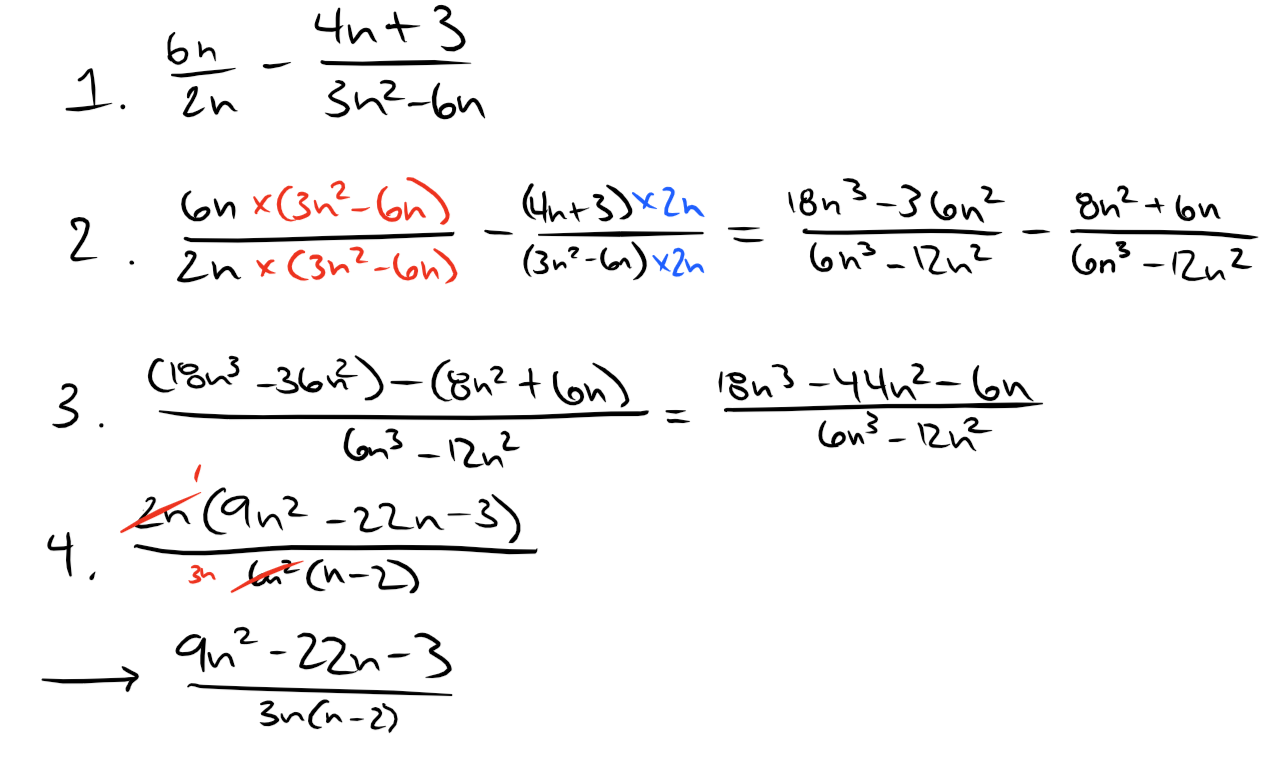 1. 6n/2n - (4n+3)/(3n²-6n)
2. (6n×(3n²-6n))/(2n×(3n²-6n)) - ((4n+3)×2n)/((3n²-6n)×2n) = (18n³-36n²)/(6n³-12n²) - (8n²+6n)/(6n³-12n²)
3. ((18n³-36n²)-(8n²+6n))/(6n³-12n²) = (18n³-44n²-6n)/(6n³-12n²)
4. 2n 1 (9n²-22n-3)/(3n 6n² (n-2))
→ (9n²-22n-3)/(3n(n-2))